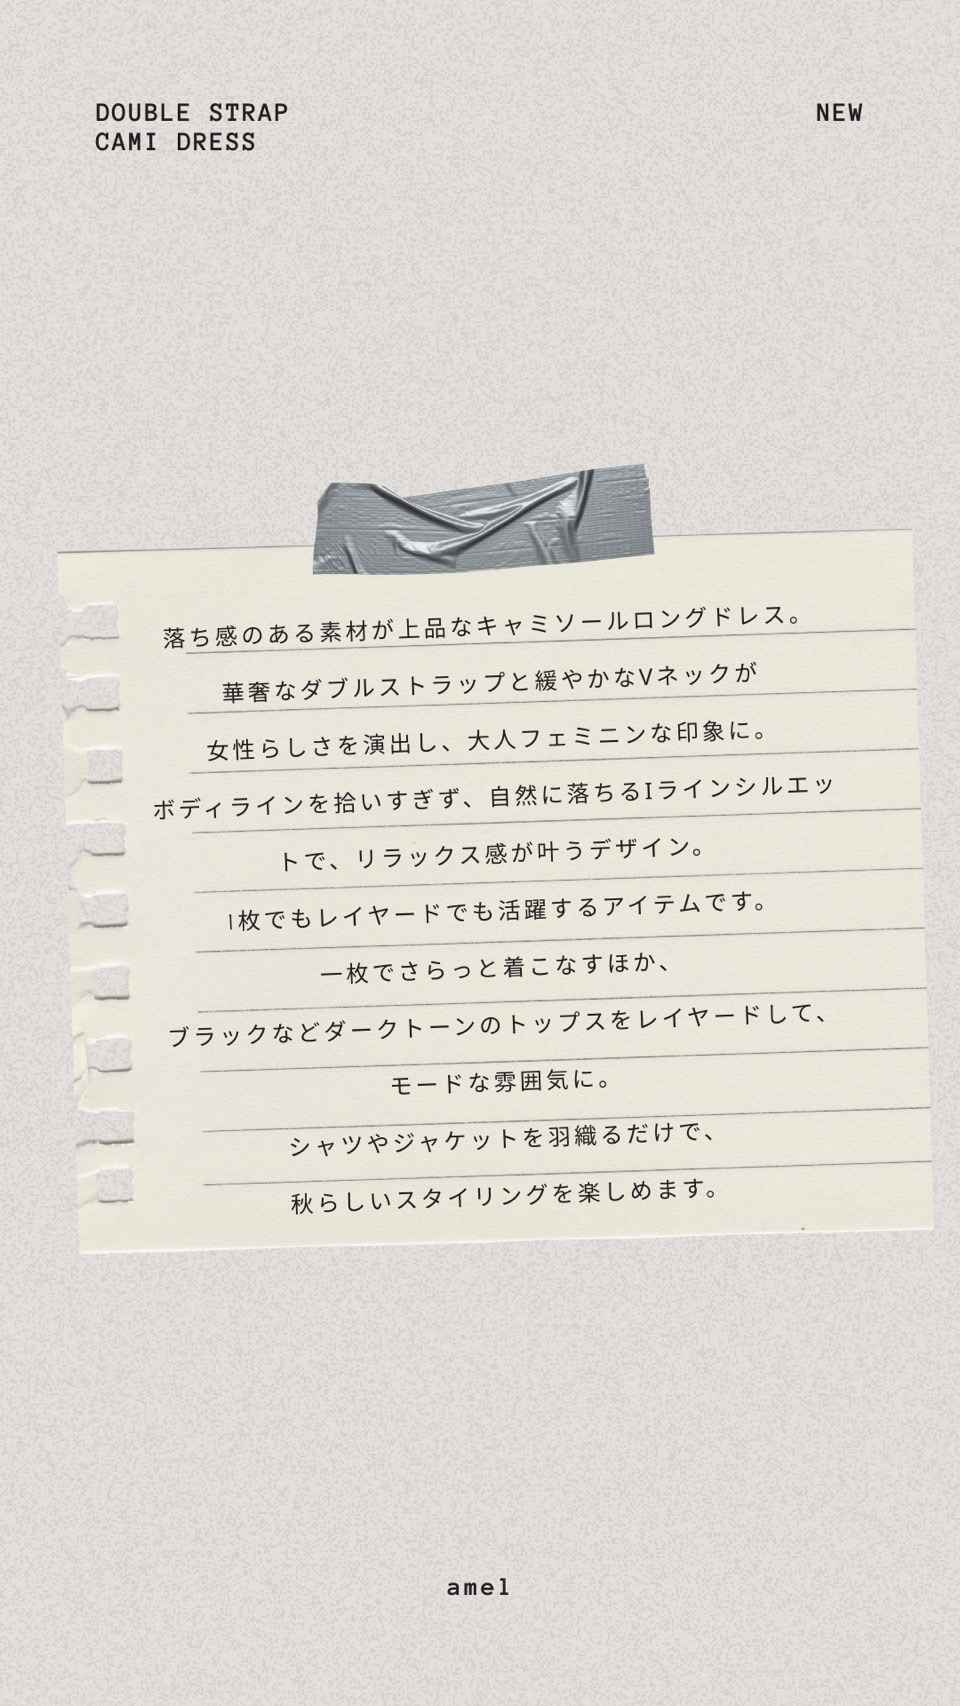 DOUBLE STRAP
CAMI DRESS
NEW
落ち感のある素材が上品なキャミソールロングドレス。
華奢なダブルストラップと緩やかなVネックが
女性らしさを演出し、大人フェミニンな印象に。
ボディラインを拾いすぎず、自然に落ちるIラインシルエッ
トで、リラックス感が叶うデザイン。
1枚でもレイヤードでも活躍するアイテムです。
一枚でさらっと着こなすほか、
ブラックなどダークトーンのトップスをレイヤードして、
モードな雰囲気に。
シャツやジャケットを羽織るだけで、
秋らしいスタイリングを楽しめます。
amel